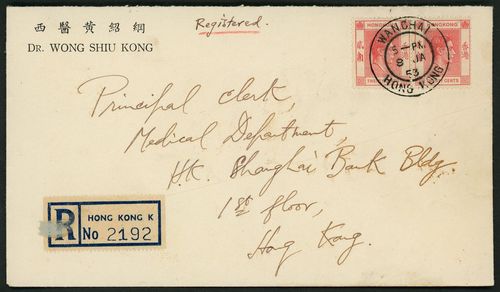 西醫黃紹綱
DR. WONG SHIU KONG
Registered.
WANCHAI
5–PM
8 JA
53
HONG KONG
HONG KONG
CENTS
Principal Clerk,
Medical Department,
H.K. Shanghai Bank Bldg.
1st floor,
Hong Kong.
R HONG KONG K
No 2192